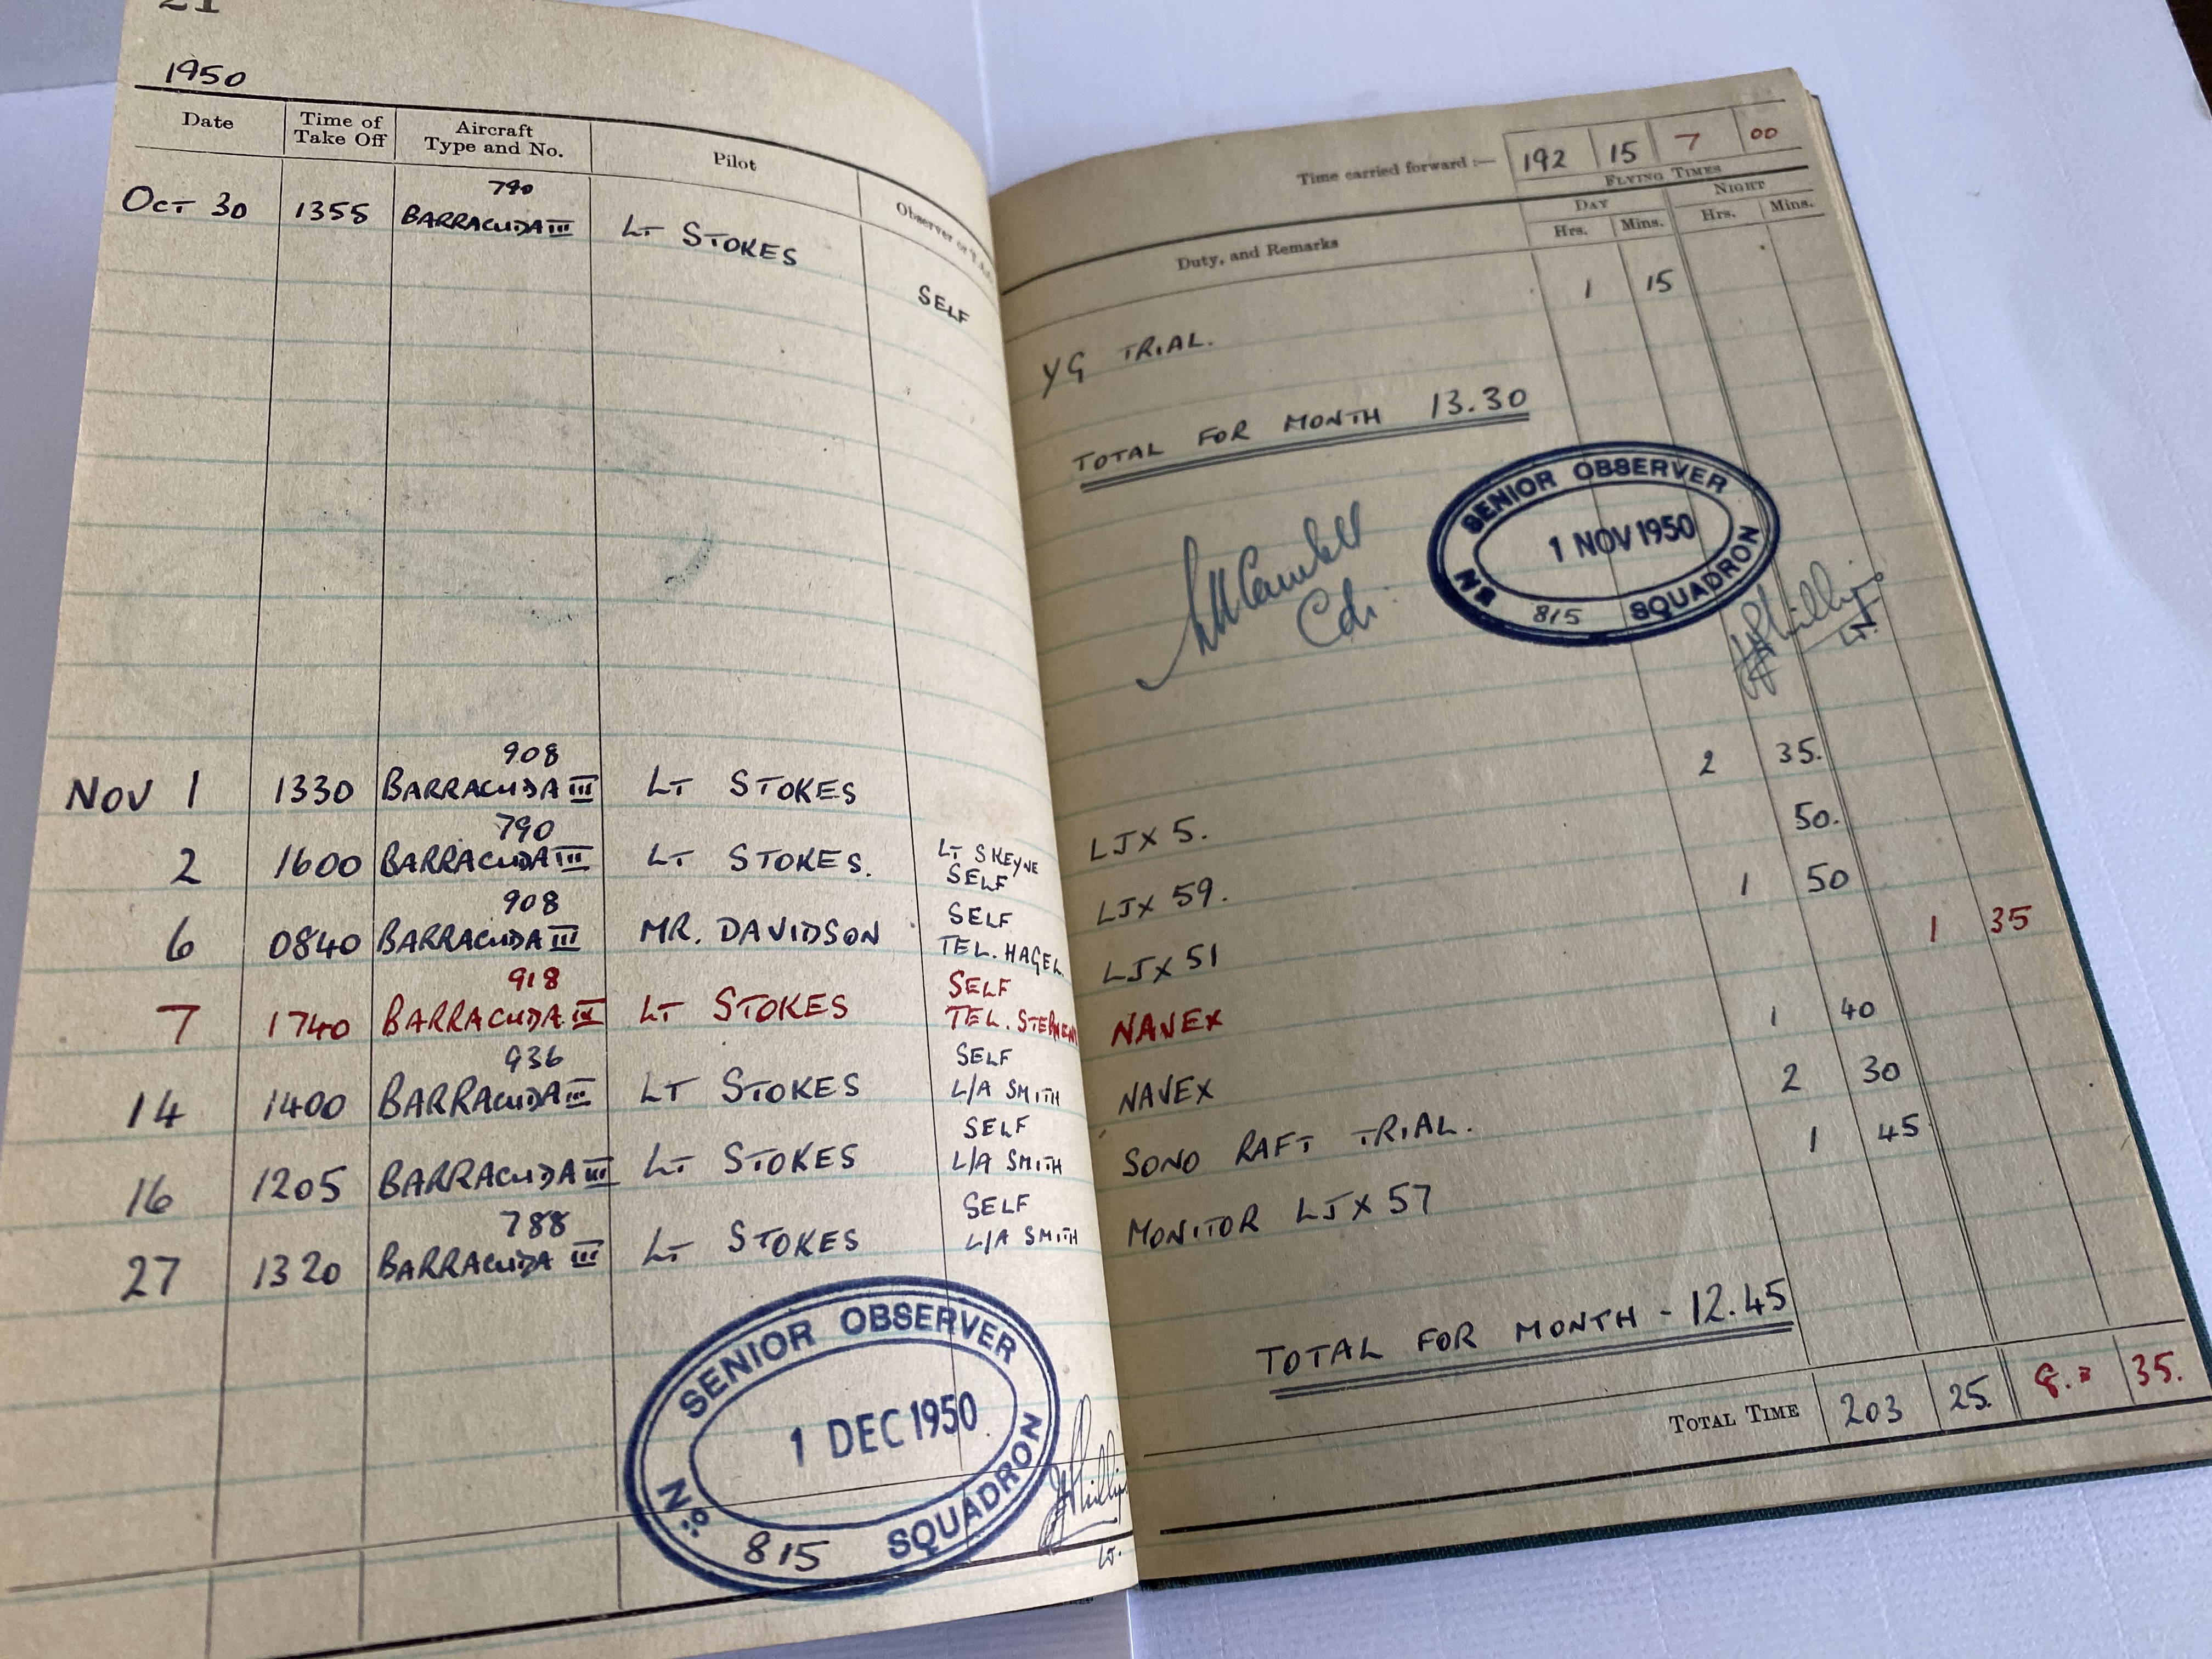 21
1950
Date Time of Take Off Aircraft Type and No. Pilot
790
Oct 30 1355 BARRACUDA III LT STOKES SELF
908
NOV 1 1330 BARRACUDA III LT STOKES
790
2 1600 BARRACUDA III LT STOKES. LT SKEYNE SELF
908
6 0840 BARRACUDA III MR. DAVIDSON SELF TEL. HAGEL
918
7 1740 BARRACUDA III LT STOKES SELF TEL.
936
14 1400 BARRACUDA III LT STOKES SELF L/A SMITH
16 1205 BARRACUDA III LT STOKES SELF L/A SMITH
788
27 1320 BARRACUDA III LT STOKES SELF L/A SMITH
SENIOR OBSERVER
1 DEC 1950
No: 815 SQUADRON
LT.
Time carried forward :— 192 15 7 00
FLYING TIMES
DAY NIGHT
Duty, and Remarks Hrs. Mins. Hrs. Mins.
1 15
YG TRIAL.
TOTAL FOR MONTH 13.30
SENIOR OBSERVER
1 NOV 1950
No 815 SQUADRON
Cdr.
LT.
LJX 5. 2 35.
LJX 59. 50.
LJX 51 1 50
NAVEX 1 35
NAVEX 1 40
SONO RAFT TRIAL. 2 30
MONITOR LJX 57 1 45
TOTAL FOR MONTH - 12.45
TOTAL TIME 203 25. 8. 35.